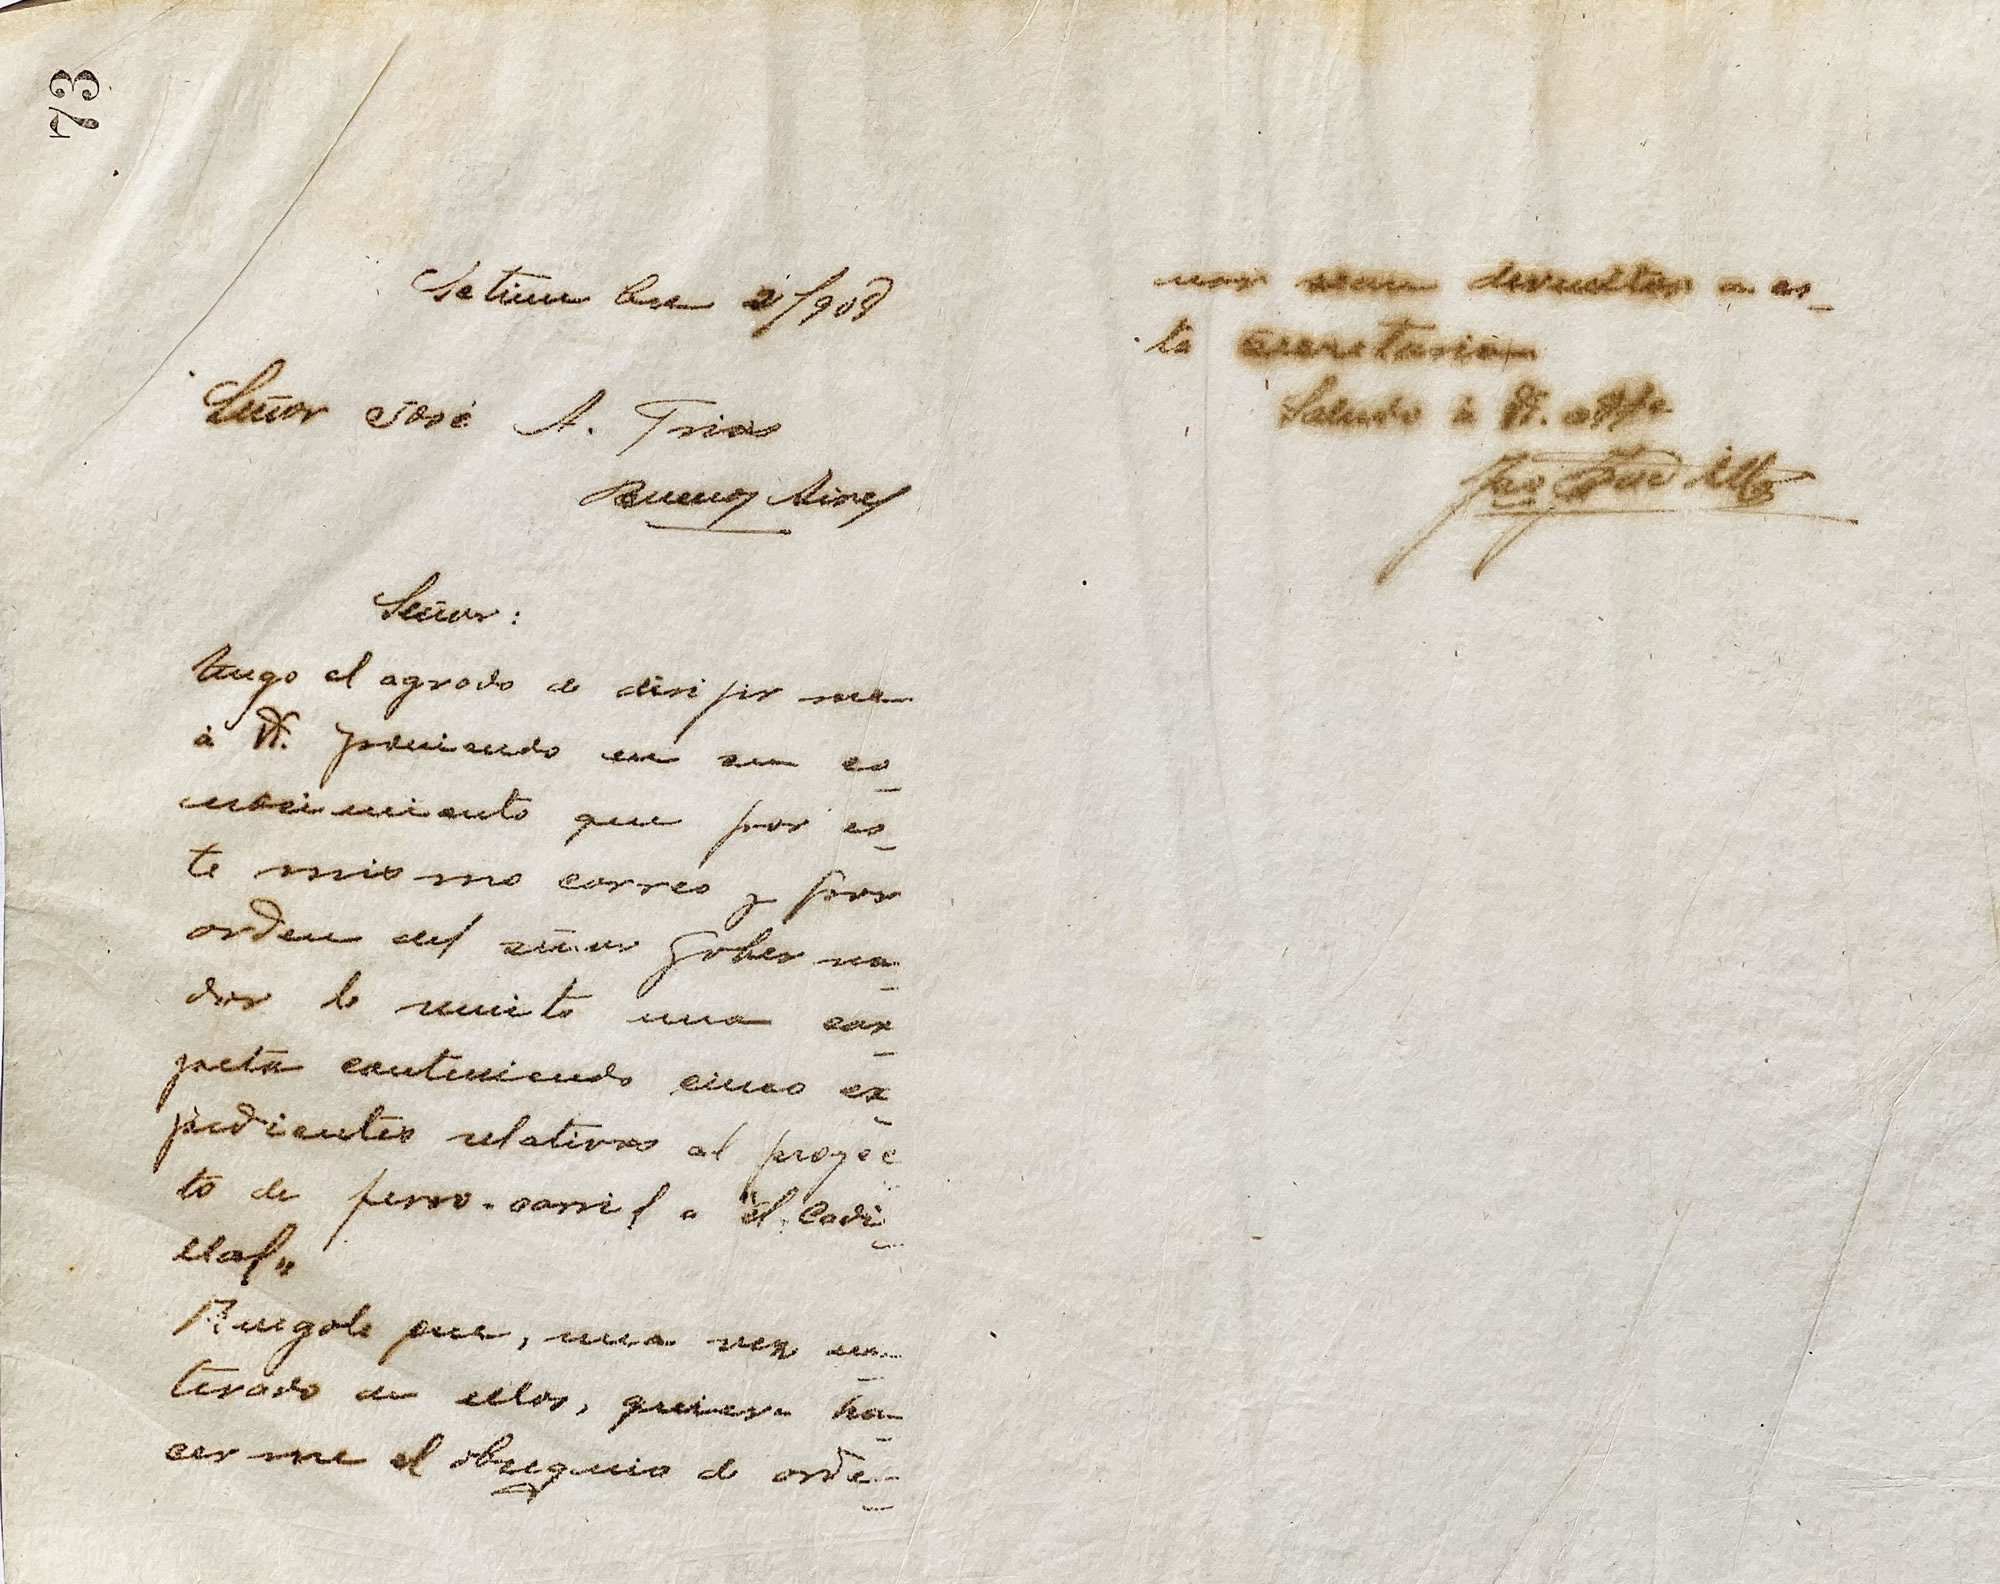 73
Setiembre 2/908
Señor José A. Frias
Buenos Aires
Señor:
tengo el agrado de dirijirme
à Vd. poniendo en su co-
nocimiento que por es-
te mismo correo y por
orden del señor Goberna-
dor le remito una car-
peta conteniendo cinco ex-
pedientes relativos al proyec-
to de ferro-carril a "El Cadi-
llal"
Ruegole que, una vez en-
terado de ellos, quiera ha-
cerme el obsequio de orde-
nar sean devueltos a es-
ta secretaria
Saludo à Vd. atte